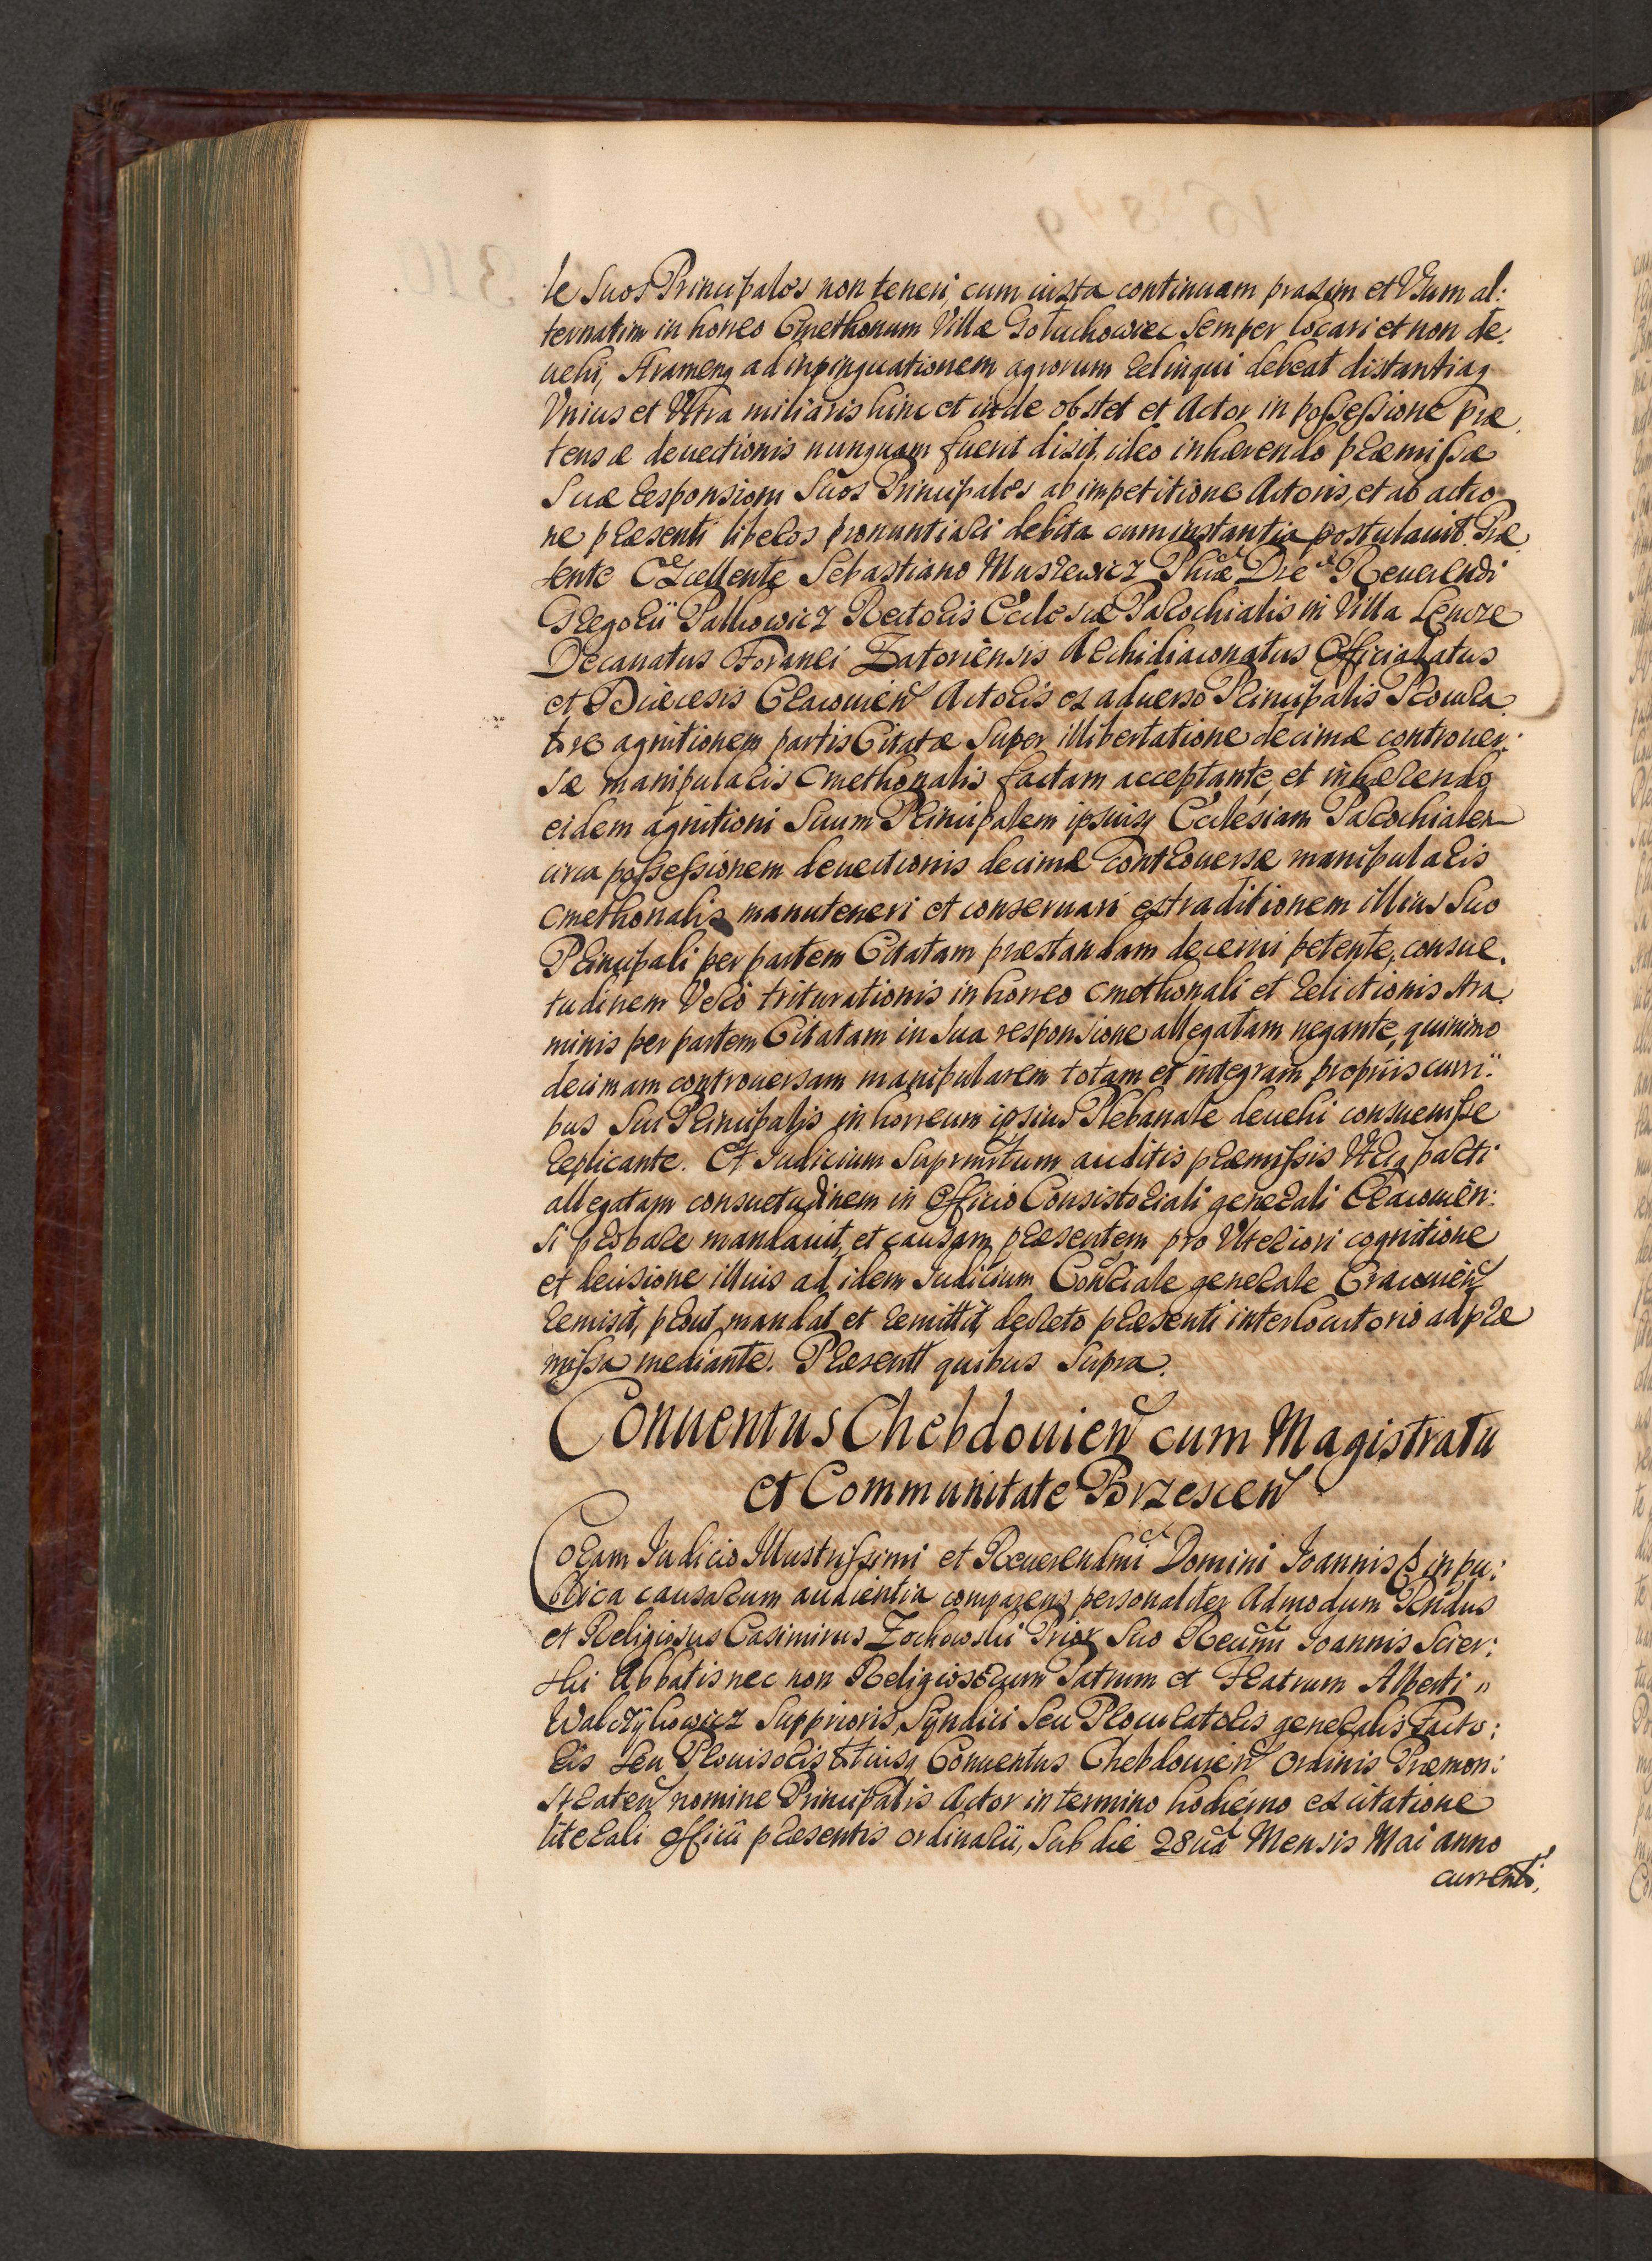 le Suos Principales non teneri, cum iuxta continuam praxim et Vsum al:
ternatim in horreo Cmethonum Villæ Gołuchowiec Semper locari et non de:
uehi, Stramenq ad inpinguationem agrorum relinqui debeat distantiaq
Vnius et Vltra miliaris hinc et inde obstet et Actor in possessione præ
tensæ deuectionis nunquam fuerit dixit, ideo inhærendo præmissæ
Suæ responsioni Suos Principales ab impetitione Actoris, et ab actio
ne præsenti liberos pronuntiari debita cum instantia postulauit. Præ
sente Excellente Sebastiano Muszewicz Phiæ Dre Reuerendi
Gregorii Palkowicz Rectoris Ecclesiæ Parochialis in Villa Lencze
Decanatus Foranei Zatoriensis Archidiaconatus Officialatus
et Diæcesis Cracouien Actoris ex aduerso Principalis Procura
tore agnitionem partis Citatæ Super illibertatione decimæ controuer:
sæ manipularis Cmethonalis factam acceptante, et inhærendo
eidem agnitioni Suum Principalem ipsiusq Ecclesiam Parochialem
circa possessionem deuectionis decimæ controuersæ manipularis
cmethonalis manuteneri et conseruari extraditionem illius Suo
Principali per partem Citatam præstandam decerni petente, consue.
tudinem Vero triturationis in horreo cmethonali et relictionis stra
minis per partem Citatam in Sua responsione allegatam negante, quinimo
decimam controuersam manipularem totam et integram propriis curri:
bus Sui Principalis in horreum ipsius Plebanale deuehi consueuisse
replicante. Et Iudicium Suprmtum auditis præmissis Vtriq parti
allegatam consuetudinem in Officio Consistoriali generali Cracouien:
si probare mandauit, et causam præsentem pro Vlteriori cognitione
et decisione illius ad idem Iudicium Conrciale generale Cracouien
remisit, prout mandat et remittit, decreto præsenti interlocutorio ad præ
missa mediante. Præsentt quibus Supra.
Conuentus Chebdouien cum Magistratu
et Communitate Brzescen
Coram Iudicio Illustrissimi et Reuerendmi Domini Ioannis &c in pu:
blica causarum audientia comparens personaliter Admodum Rndus
et Religiosus Casimirus Zochowski Prior Suo Reuimi Ioannis Scier:
ski Abbatis nec non Religiosorum Patrum et Fratrum Alberti
Walczykowicz Supprioris, Syndici Seu Procuratoris generalis Facto:
ris Seu Prouisoris totiusq Conuentus Chebdouien Ordinis Præmon:
straten nomine Principalis Actor in termino hodierno ex citatione
literali officii præsentis ordinarii, Sub die 28ua Mensis Mai anno
currenti,